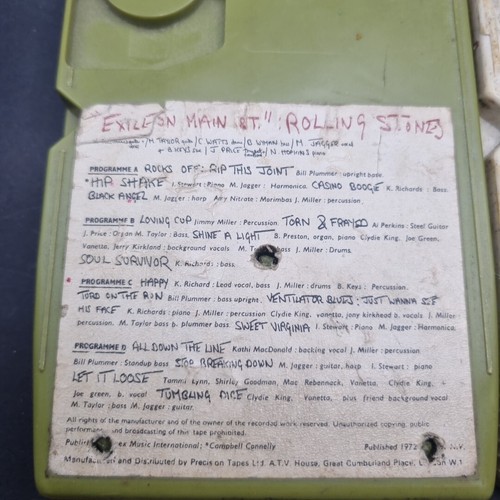 EXILE ON MAIN ST." : ROLLING STONES
M TAYLOR / C WATTS / B WYMAN / M. JAGGER
+ B KEYS / J PRICE / N HOPKINS piano
PROGRAMME A ROCKS OFF : RIP THIS JOINT Bill Plummer : upright bass.
*HIP SHAKE I. Stewart : Piano M. Jagger : Harmonica. CASINO BOOGIE K. Richards : Bass.
BLACK ANGEL M. Jagger : harp Amy Nitrate : Marimbas J. Miller : percussion.
PROGRAMME B LOVING CUP Jimmy Miller : Percussion. TORN & FRAYED Al Perkins : Steel Guitar
J. Price : Organ M. Taylor : Bass. SHINE A LIGHT B. Preston, organ, piano Clydie King, Joe Green,
Vanetta, Jerry Kirkland : background vocals M. bass J. Miller : Drums.
SOUL SURVIVOR K. Richards : bass.
PROGRAMME C HAPPY K. Richard : Lead vocal, bass J. Miller : drums B. Keys : Percussion.
TURD ON THE RUN Bill Plummer : bass upright. VENTILATOR BLUES : JUST WANNA SEE
HIS FACE K. Richards : piano J. Miller : percussion Clydie King, vanetta, jony kirkhead b. vocals J. Miller :
percussion. M. Taylor bass b. plummer bass SWEET VIRGINIA I. Stewart : Piano M. Jagger : Harmonica.
PROGRAMME D ALL DOWN THE LINE Kathi MacDonald : backing vocal J. Miller : percussion
Bill Plummer : Standup bass STOP BREAKING DOWN M. Jagger : guitar, harp I. Stewart : piano
LET IT LOOSE Tammi Lynn, Shirley Goodman, Mac Rebennack, Vanetta, Clydie King, +
Joe green, b. vocal TUMBLING DICE Clydie King, Vanetta, plus friend background vocal
M. Taylor : bass M. Jagger : guitar.
All rights of the manufacturer and of the owner of the recorded work reserved. Unauthorized copying, public
performance and broadcasting of this tape prohibited.
Music International; *Campbell Connelly Published 1972 N.V.
Manufactured and Distributed by Precision Tapes Ltd. A.T.V. House, Great Cumberland Place, London W.1